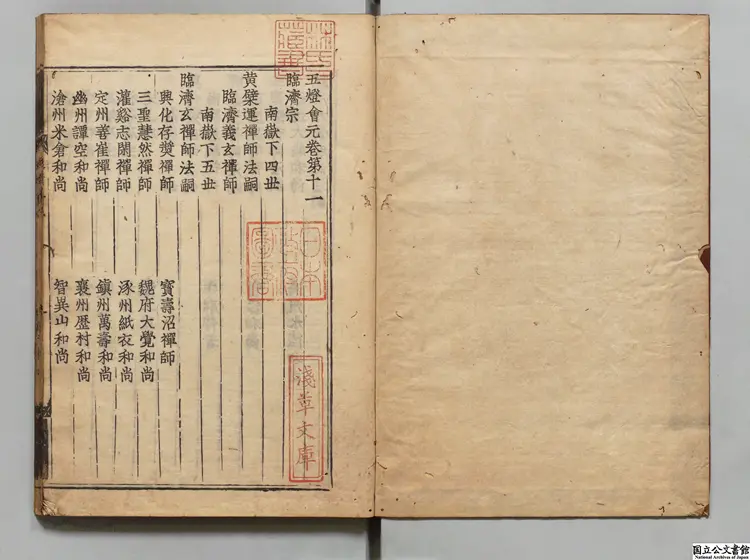 五燈會元卷第十一
臨濟宗
南嶽下四丗
黄檗運禪師法嗣
臨濟義玄禪師
南嶽下五丗
臨濟玄禪師法嗣
興化存奨禪師
寶壽沼禪師
三聖慧然禪師
魏府大覺和尚
灌谿志閑禪師
涿州紙衣和尚
定州善崔禪師
鎮州萬壽和尚
幽州譚空和尚
襄州歷村和尚
滄州米倉和尚
智異山和尚
林氏藏書
日本政府圖書
淺草文庫
国立公文書館
National Archives of Japan